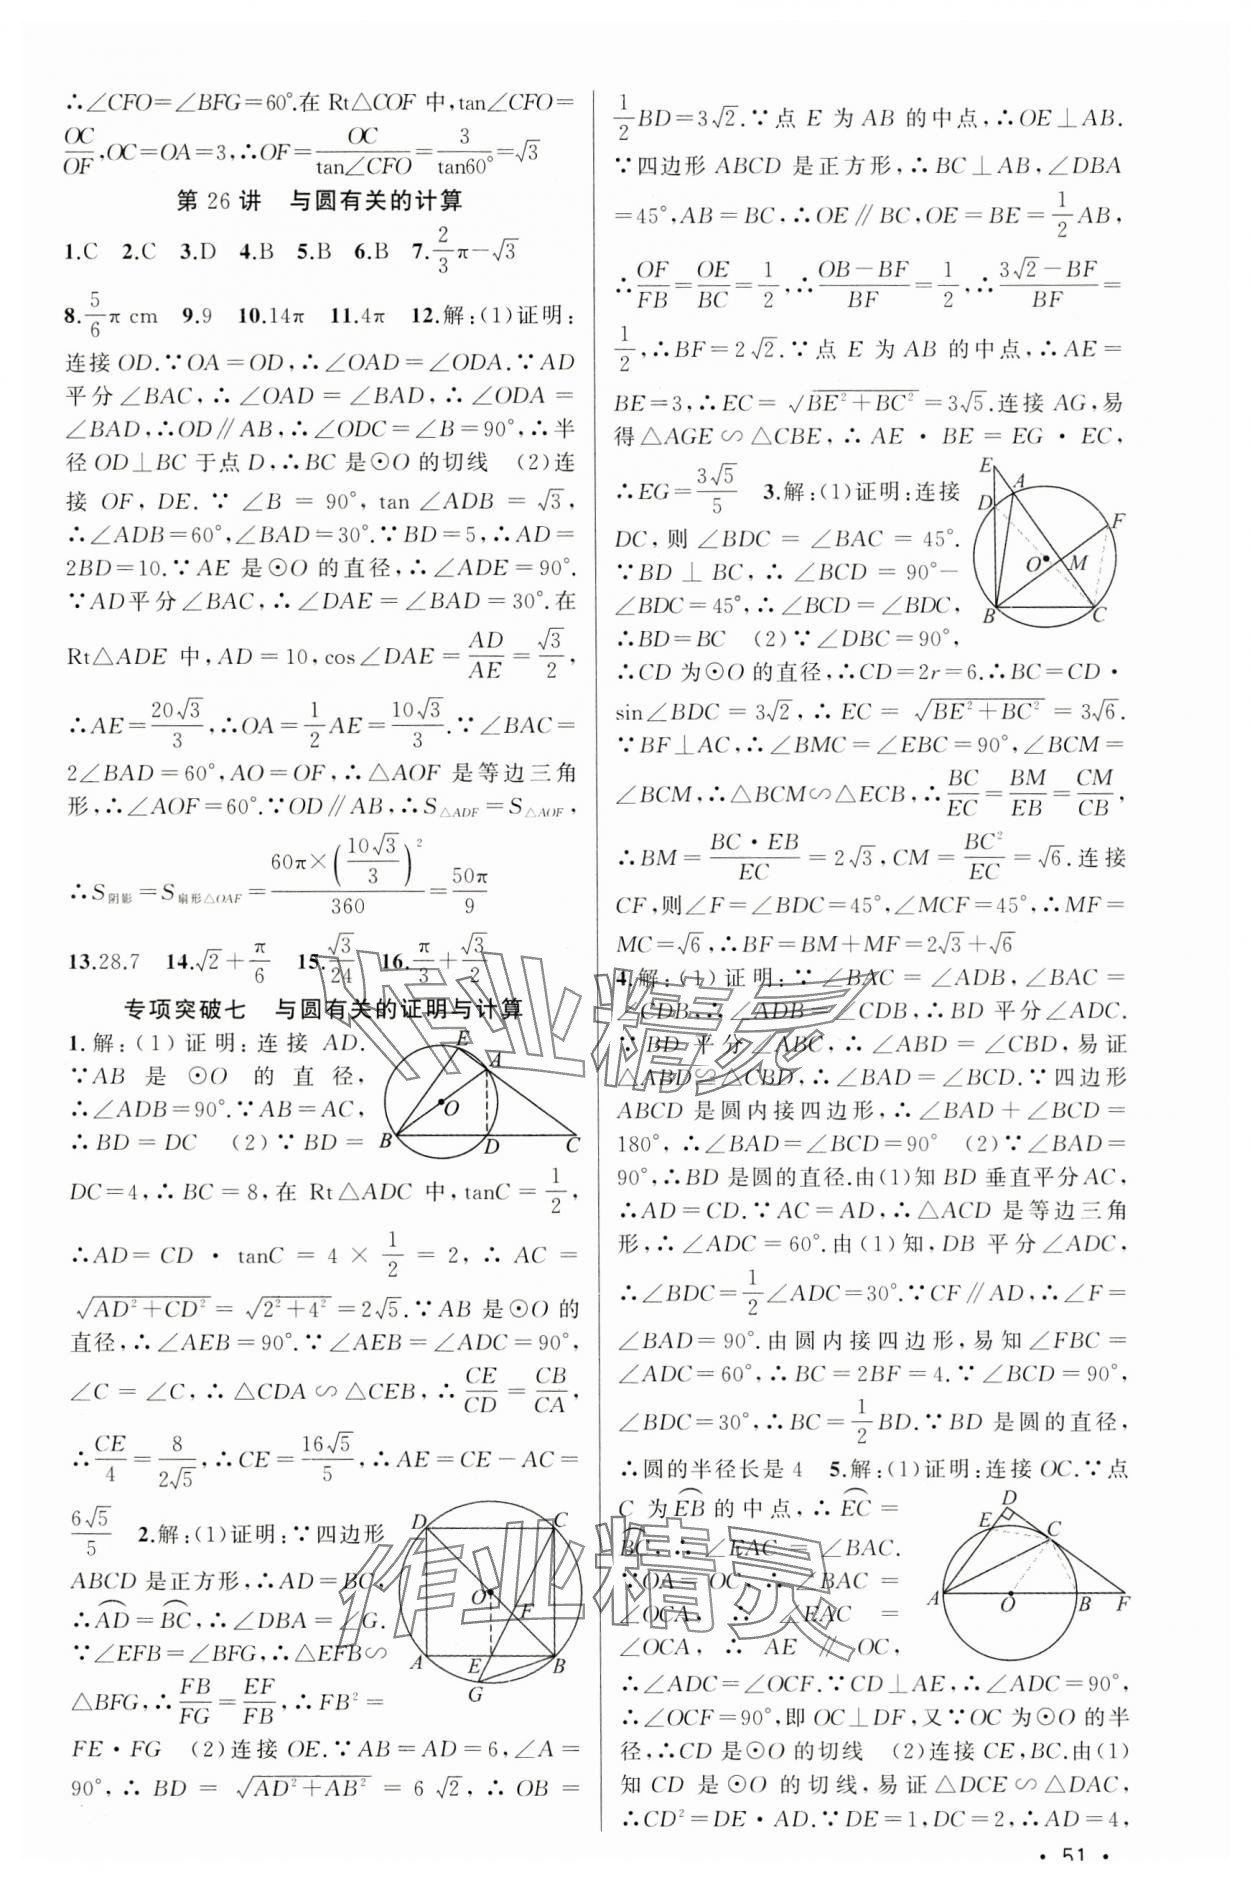 ∴∠CFO=∠BFG=60°.在 Rt△COF 中,tan∠CFO=
OC/OF,OC=OA=3,∴OF=OC/tan∠CFO=3/tan60°=√3
第 26 讲　与圆有关的计算
1.C　2.C　3.D　4.B　5.B　6.B　7.2/3π−√3
8.5/6π cm　9.9　10.14π　11.4π　12.解:(1)证明:
连接 OD.∵OA=OD,∴∠OAD=∠ODA.∵AD
平分∠BAC,∴∠OAD=∠BAD,∴∠ODA=
∠BAD,∴OD∥AB,∴∠ODC=∠B=90°,∴半
径 OD⊥BC 于点 D,∴BC 是⊙O 的切线　(2)连
接 OF,DE.∵∠B=90°,tan∠ADB=√3,
∴∠ADB=60°,∠BAD=30°.∵BD=5,∴AD=
2BD=10.∵AE 是⊙O 的直径,∴∠ADE=90°.
∵AD平分∠BAC,∴∠DAE=∠BAD=30°.在
Rt△ADE 中,AD=10,cos∠DAE=AD/AE=√3/2,
∴AE=20√3/3,∴OA=1/2AE=10√3/3.∵∠BAC=
2∠BAD=60°,AO=OF,∴△AOF 是等边三角
形,∴∠AOF=60°.∵OD∥AB,∴S△ADF=S△AOF,
∴S阴影=S扇形△OAF=60π×(10√3/3)²/360=50π/9
13.28.7　14.√2+π/6　15.√3/24　16.π/3+√3/2
专项突破七　与圆有关的证明与计算
1.解:(1)证明:连接 AD.
∵AB 是⊙O 的直径,
∴∠ADB=90°.∵AB=AC,
∴BD=DC　(2)∵BD=
DC=4,∴BC=8,在 Rt△ADC 中,tanC=1/2,
∴AD=CD·tanC=4×1/2=2,∴AC=
√(AD²+CD²)=√(2²+4²)=2√5.∵AB 是⊙O 的
直径,∴∠AEB=90°.∵∠AEB=∠ADC=90°,
∠C=∠C,∴△CDA∽△CEB,∴CE/CD=CB/CA,
∴CE/4=8/2√5,∴CE=16√5/5,∴AE=CE−AC=
6√5/5　2.解:(1)证明:∵四边形
ABCD 是正方形,∴AD=BC,
∴⌒AD=⌒BC,∴∠DBA=∠G.
∵∠EFB=∠BFG,∴△EFB∽
△BFG,∴FB/FG=EF/FB,∴FB²=
FE·FG　(2)连接 OE.∵AB=AD=6,∠A=
90°,∴BD=√(AD²+AB²)=6√2,∴OB=
1/2BD=3√2.∵点 E 为 AB 的中点,∴OE⊥AB.
∵四边形 ABCD 是正方形,∴BC⊥AB,∠DBA
=45°,AB=BC,∴OE∥BC,OE=BE=1/2AB,
∴OF/FB=OE/BC=1/2,∴(OB−BF)/BF=1/2,∴(3√2−BF)/BF=
1/2,∴BF=2√2.∵点 E 为 AB 的中点,∴AE=
BE=3,∴EC=√(BE²+BC²)=3√5.连接 AG,易
得△AGE∽△CBE,∴AE·BE=EG·EC,
∴EG=3√5/5　3.解:(1)证明:连接
DC,则∠BDC=∠BAC=45°.
∵BD⊥BC,∴∠BCD=90°−
∠BDC=45°,∴∠BCD=∠BDC,
∴BD=BC　(2)∵∠DBC=90°,
∴CD 为⊙O 的直径,∴CD=2r=6.∴BC=CD·
sin∠BDC=3√2,∴EC=√(BE²+BC²)=3√6.
∵BF⊥AC,∴∠BMC=∠EBC=90°,∠BCM=
∠BCM,∴△BCM∽△ECB,∴BC/EC=BM/EB=CM/CB,
∴BM=BC·EB/EC=2√3,CM=BC²/EC=√6.连接
CF,则∠F=∠BDC=45°,∠MCF=45°,∴MF=
MC=√6,∴BF=BM+MF=2√3+√6
4.解:(1)证明:∵∠BAC=∠ADB,∠BAC=
∠CDB,∴∠ADB=∠CDB,∴BD 平分∠ADC.
∵BD 平分∠ABC,∴∠ABD=∠CBD,易证
△ABD∽△CBD,∴∠BAD=∠BCD.∵四边形
ABCD 是圆内接四边形,∴∠BAD+∠BCD=
180°,∴∠BAD=∠BCD=90°　(2)∵∠BAD=
90°,∴BD 是圆的直径.由(1)知 BD 垂直平分 AC,
∴AD=CD.∵AC=AD,∴△ACD 是等边三角
形,∴∠ADC=60°.由(1)知,DB 平分∠ADC,
∴∠BDC=1/2∠ADC=30°.∵CF∥AD,∴∠F=
∠BAD=90°.由圆内接四边形,易知∠FBC=
∠ADC=60°,∴BC=2BF=4.∵∠BCD=90°,
∠BDC=30°,∴BC=1/2BD.∵BD 是圆的直径,
∴圆的半径长是 4　5.解:(1)证明:连接 OC.∵点
C 为⌒EB的中点,∴⌒EC=
⌒BC,∴∠EAC=∠BAC.
∵OA=OC,∴∠BAC=
∠OCA,∴∠EAC=
∠OCA,∴AE∥OC,
∴∠ADC=∠OCF.∵CD⊥AE,∴∠ADC=90°,
∴∠OCF=90°,即 OC⊥DF,又∵OC 为⊙O 的半
径,∴CD 是⊙O 的切线　(2)连接 CE,BC.由(1)
知 CD 是⊙O 的切线,易证△DCE∽△DAC,
∴CD²=DE·AD.∵DE=1,DC=2,∴AD=4,
· 51 ·
E
A
O
B
D
C
D
C
O
F
A
E
B
G
E
A
D
F
O
M
B
C
D
E
C
A
O
B
F
作业精灵
作业精灵